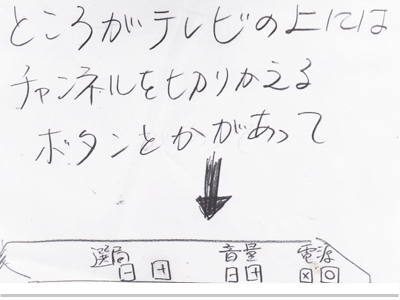 ところがテレビの上には
チャンネルを切りかえる
ボタンとかがあって
選局 音量 電源
- + - + × ○